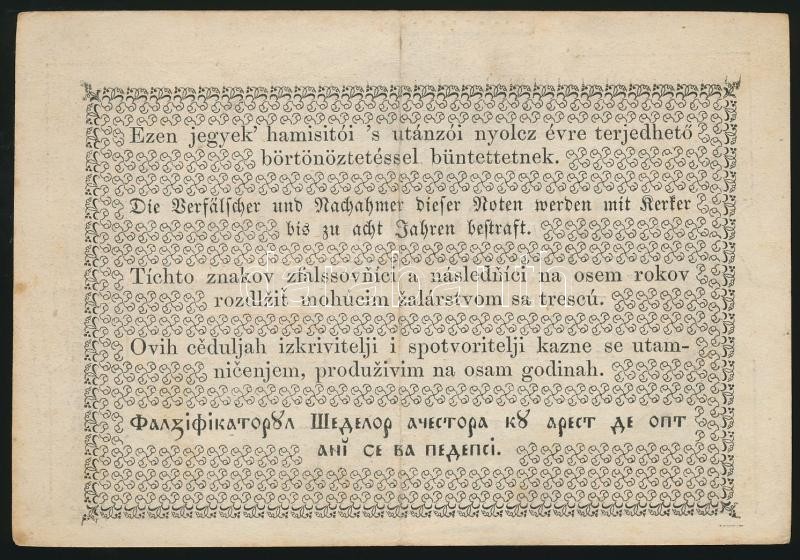 Ezen jegyek’ hamisitói ’s utánzói nyolcz évre terjedhető
börtönöztetéssel büntettetnek.
Die Verfälscher und Nachahmer dieser Noten werden mit Kerker
bis zu acht Jahren bestraft.
Tíchto znakov zfalssovňíci a násleďňíci na osem rokov
rozdlžiť mohúcim žalárstvom sa trescú.
Ovih cěduljah izkrivitelji i spotvoritelji kazne se utam-
ničenjem, produživim na osam godinah.
Фалꙁіфікаторꙋл Шеделор ачестора кꙋ арест де опт
анĭ се ва педепсі.
darabanth